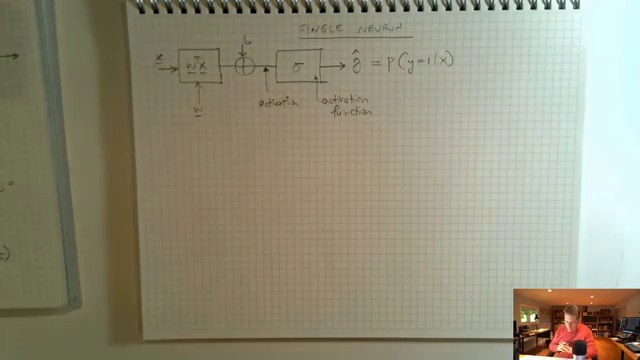 SINGLE NEURON
b
x wᵀx + σ ŷ = p(y=1/x)
w activation activation
function
=
)